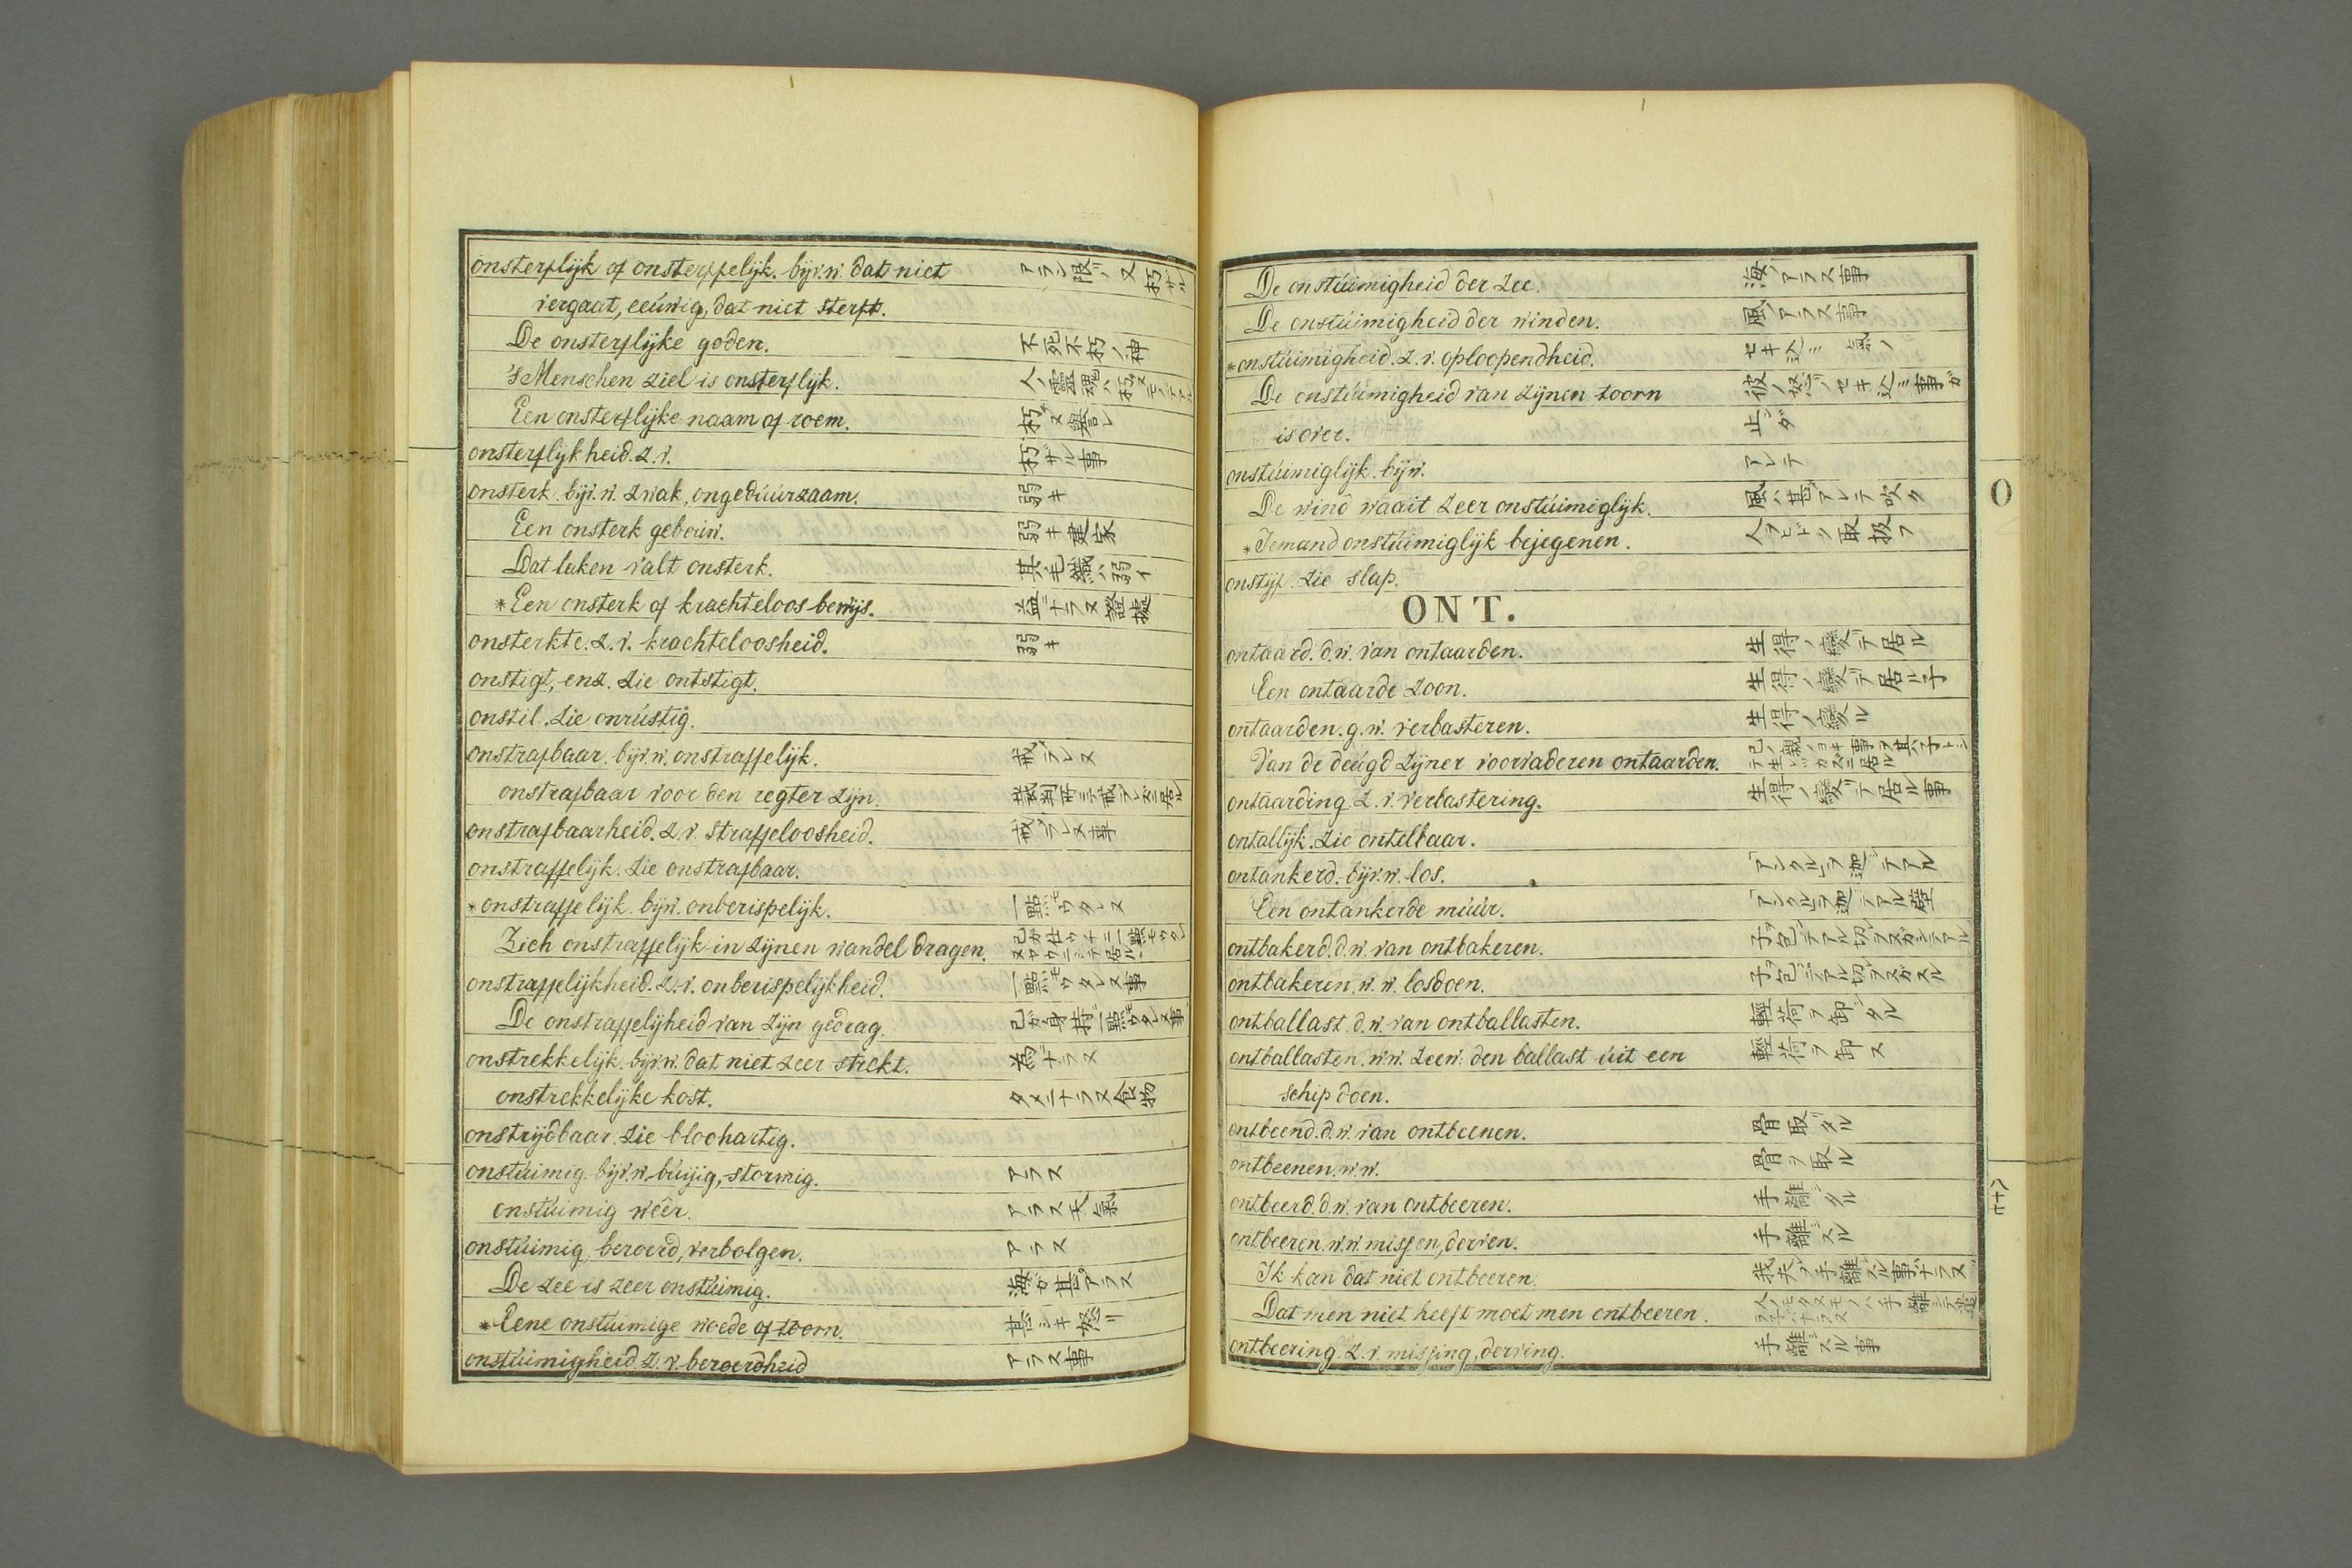 onsterflijk of onsterffelijk. bijv.w. dat niet アラン限ノ 又朽サル
vergaat, eeúwig, dat niet sterft.
De onsterflijke goden. 不死不朽ノ神
's Menschen ziel is onsterflijk. 人ノ靈魂ハ朽
Een onsterflijke naam of roem. 朽サヌ譽レ
onsterflijkheid. z.v. 朽サル事
onsterk. bijv.w. zwak, ongedúúrzaam. 弱キ
Een onsterk geboúw. 弱キ建家
Dat laken valt onsterk. 其毛織ハ弱イ
*Een onsterk of krachteloos bewijs. 益ニナラヌ證據
onsterkte. z.v. krachteloosheid. 弱キ
onstigt, enz. zie ontstigt.
onstil. zie onrústig.
onstrafbaar. bijv.w. onstraffelijk. 戒ラレヌ
onstrafbaar voor den regter zijn. 裁判所ニテ戒ラレズニ居ル
onstrafbaarheid. z.v. straffeloosheid. 戒ラレヌ事
onstraffelijk. zie onstrafbaar.
*onstraffelijk. bijw. onberispelijk. 一點モウタレヌ
Zich onstraffelijk in zijnen wandel dragen. 己ガ仕ワサニ一點モウタレヌヤウニシテ居ル
onstraffelijkheid. z.v. onberispelijkheid. 一點モウタレヌ事
De onstraffelijheid van zijn gedrag. 己ガ身持ニ一點モウタレヌ事
onstrekkelijk. bijv.w. dat niet zeer strekt. 為ニナラヌ
onstrekkelijke kost. タメニナラヌ食物
onstrijdbaar. zie bloohartig.
onstúimig. bijv.w. búijig, stormig. アラス
onstúimig wêêr. アラス天氣
onstúimig, beroerd, verbolgen. アラス
De zee is zeer onstúimig. 海ガ甚アラス
*Eene onstúimige woede of toorn. 甚シキ怒リ
onstúimigheid. z.v. beroerdheid アラス事
De onstúimigheid der zee. 海ノアラス事
De onstúimigheid der winden. 風ノアラス事
*onstúimigheid. z.v. oploopendheid. セキ込ミ 氣ノ
De onstúimigheid van zijnen toorn 彼ノ怒ノセキ込ミ事ガ
is over. 止ダ
onstúimiglijk. bijw. アレテ
De wind waait zeer onstúimiglijk. 風ハ甚アレテ吹ク
*Iemand onstúimiglijk bejegenen. 人ヲヒドク取扱フ
onstijf. zie slap.
O
ONT.
ontaard. d.w. van ontaarden. 生得ノ變テ居ル
Een ontaarde zoon. 生得ノ變テ居ル子
ontaarden. g.w. verbasteren. 生得ノ變ル
Van de deúgd zijner voorvaderen ontaarden. 己ノ親ノヨキ事ヲ其子トシテ
ontaarding. z.v. verbastering. 生得ノ變テ居ル事
ontallijk. zie ontelbaar.
ontankerd. bijv.w. los. 「アンクル」ヲ迦テアル
Een ontankerde múúr. 「アンクル」ヲ迦テアル壁
ontbakerd. d.w. van ontbakeren.
ontbakeren. w.w. losdoen.
ontballast. d.w. van ontballasten. 輕荷ヲ卸シタル
ontballasten. w.w. zeew. den ballast úit een 輕荷ヲ卸ス
schip doen.
ontbeend. d.w. van ontbeenen. 骨ヲ取タル
ontbeenen. w.w. 骨ヲ取ル
ontbeerd. d.w. van ontbeeren. 手離シタル
ontbeeren. w.w. missen, derven. 手離スル
Ik kan dat niet ontbeeren. 我夫ヲ手離スル事ナラヌ
Dat men niet heeft moet men ontbeeren.
ontbeering. z.v. missing, derving. 手離スル事